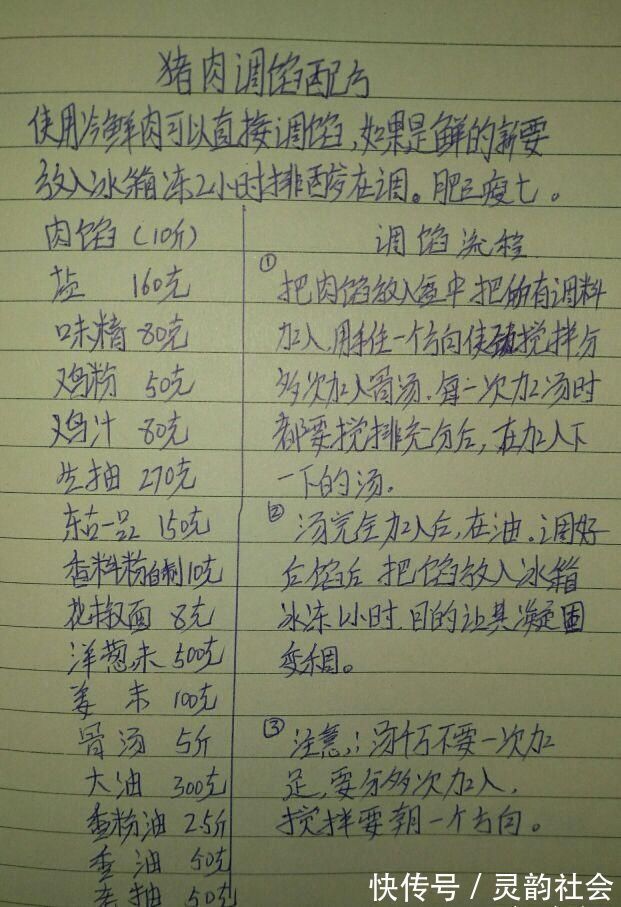 猪肉调馅配方
使用冷鲜肉可以直接调馅,如果是鲜的新要
放入冰箱冻2小时排酸在调。肥三瘦七。
肉馅(10斤)
盐 160克
味精 80克
鸡粉 50克
鸡汁 80克
生抽 270克
东古一品 150克
香料粉自制10克
花椒面 8克
洋葱末 500克
姜末 100克
骨汤 5斤
大油 300克
香粉油 2.5斤
香油 50克
老抽 50克
调馅流程
① 把肉馅放入盆中把所有调料
加入,用手往一个方向使劲搅拌分
多次加入骨汤.每一次加汤时
都要搅排充分后,在加入下
一下的汤.
② 汤完全加入后,在油.调好
后馅后 把馅放入冰箱
冰冻1小时,目的让其凝固
变稠。
③ 注意:汤千万不要一次加
足,要分多次加入,
搅拌要朝一个方向。
快传号/灵韵社会